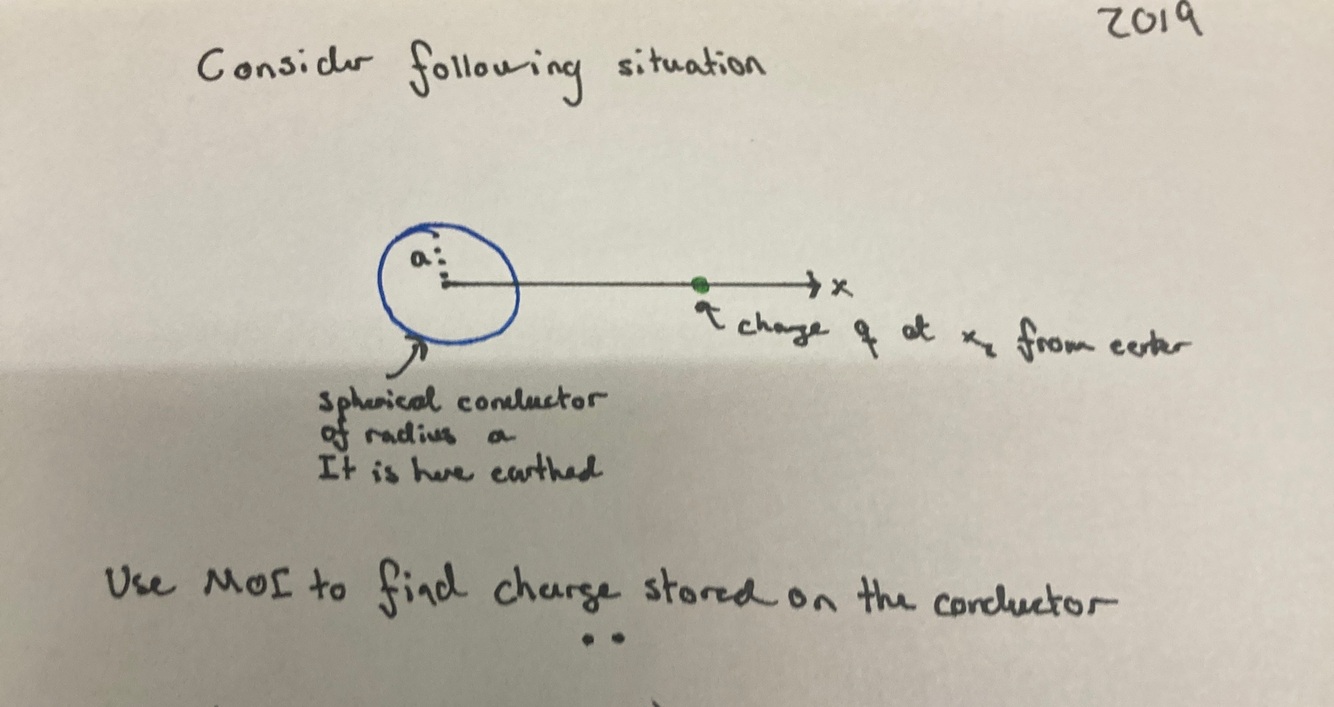 2019
Consider following situation
a
x
charge q at x₂ from center
spherical conductor
of radius a
It is here earthed
Use MOI to find charge stored on the conductor